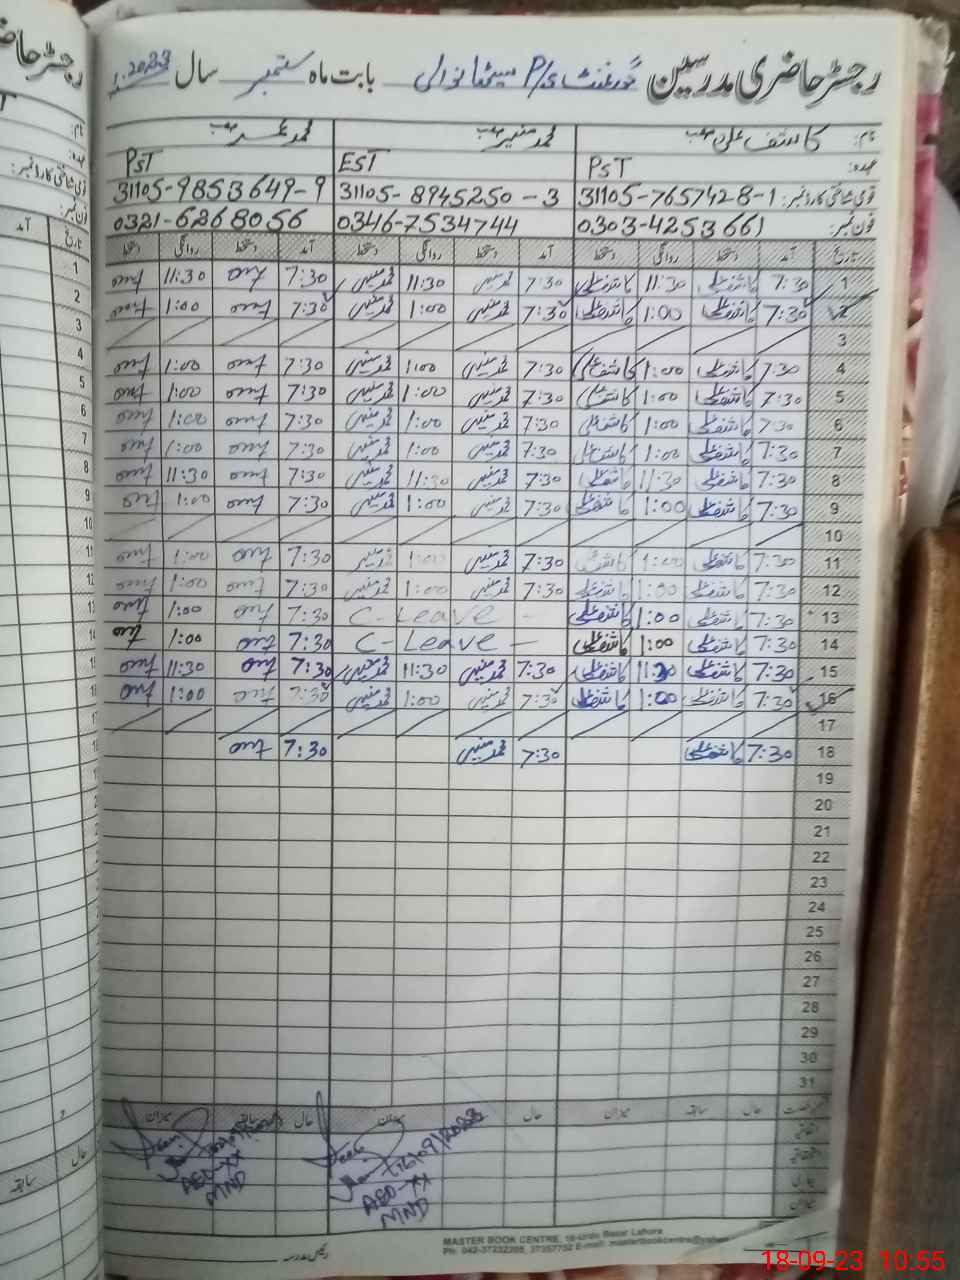 رجسٹر حاضری مدرسین گورنمنٹ P/S بابت ماہ ستمبر سال 2023
نام: کاشف علی صاحب محمد منیر صاحب محمد عمر صاحب
عہدہ: PST EST PST
قومی شناختی کارڈ نمبر: 31105-765742-8-1 31105-8945250-3 31105-9853649-9
فون نمبر: 0303-4253661 0346-7534744 0321-6268056
تاریخ آمد دستخط روانگی دستخط آمد دستخط روانگی دستخط آمد دستخط روانگی دستخط
1 7:30 کاشف علی 11:30 کاشف علی 7:30 محمد منیر 11:30 محمد منیر 7:30 عمر 11:30 عمر
2 7:30 کاشف علی 1:00 کاشف علی 7:30 محمد منیر 1:00 محمد منیر 7:30 عمر 1:00 عمر
3
4 7:30 کاشف علی 1:00 کاشف علی 7:30 محمد منیر 1:00 محمد منیر 7:30 عمر 1:00 عمر
5 7:30 کاشف علی 1:00 کاشف علی 7:30 محمد منیر 1:00 محمد منیر 7:30 عمر 1:00 عمر
6 7:30 کاشف علی 1:00 کاشف علی 7:30 محمد منیر 1:00 محمد منیر 7:30 عمر 1:00 عمر
7 7:30 کاشف علی 1:00 کاشف علی 7:30 محمد منیر 1:00 محمد منیر 7:30 عمر 1:00 عمر
8 7:30 کاشف علی 11:30 کاشف علی 7:30 محمد منیر 11:30 محمد منیر 7:30 عمر 11:30 عمر
9 7:30 کاشف علی 1:00 کاشف علی 7:30 محمد منیر 1:00 محمد منیر 7:30 عمر 1:00 عمر
10
11 7:30 کاشف علی 1:00 کاشف 7:30 محمد منیر 1:00 محمد منیر 7:30 عمر 1:00 عمر
12 7:30 کاشف علی 1:00 کاشف علی 7:30 محمد منیر 1:00 محمد منیر 7:30 عمر 1:00 عمر
13 7:30 کاشف علی 1:00 کاشف علی C-Leave - 7:30 عمر 1:00 عمر
14 7:30 کاشف علی 1:00 کاشف علی C-Leave - 7:30 عمر 1:00 عمر
15 7:30 کاشف علی 11:30 کاشف علی 7:30 محمد منیر 11:30 محمد منیر 7:30 عمر 11:30 عمر
16 7:30 کاشف علی 1:00 کاشف علی 7:30 محمد منیر 1:00 محمد منیر 7:30 عمر 1:00 عمر
17
18 7:30 کاشف علی 7:30 محمد منیر 7:30 عمر
19
20
21
22
23
24
25
26
27
28
29
30
31
حال سابقہ میزان حال میزان حال سابقہ میزان
16/09/2023
AEO-XX AEO-XX
MND MND
رئیس مدرسہ
MASTER BOOK CENTRE, 16-Urdu Bazar Lahore
Ph: 042-37232205, 37357732 E-mail: masterbookcentre@yahoo
18-09-23 10:55